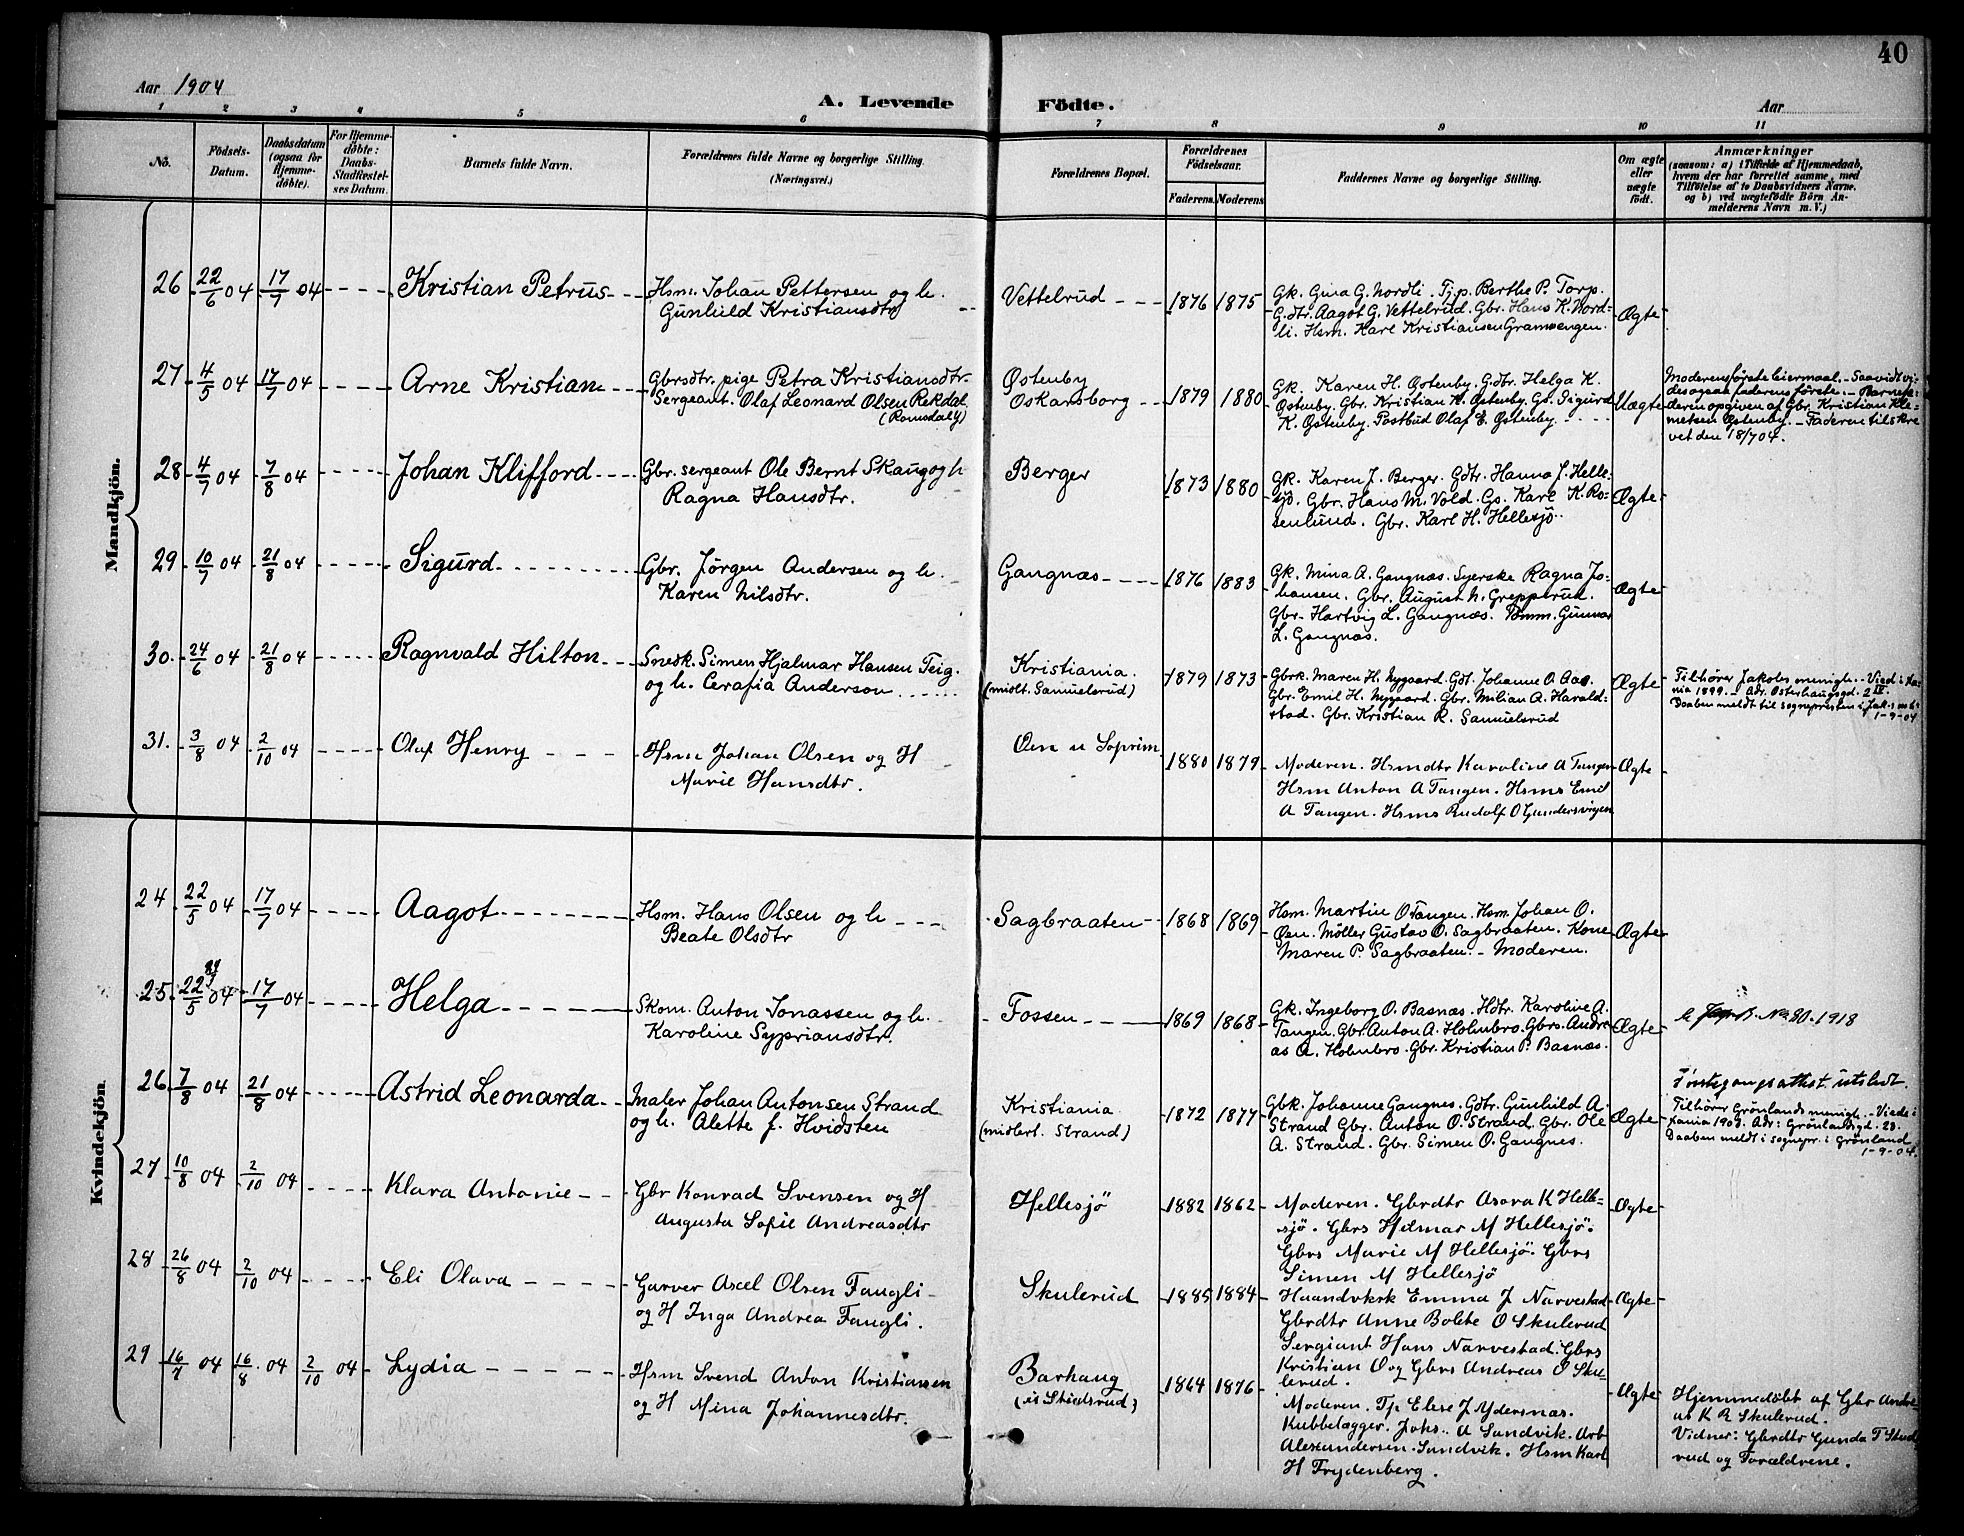 40
Aar 1904
A. Levende Födte.
Aar
1 2 3 4 5 6 7 8 9 10 11
No.
Födsels-Datum.
Daabsdatum (ogsaa for Hjemme-döbte).
For Hjemme-döbte: Daabs-Stadfæstel-ses Datum.
Barnets fulde Navn.
Forældrenes fulde Navne og borgerlige Stilling. (Næringsvei.)
Forældrenes Bopæl.
Forældrenes Födselsaar.
Faderens. Moderens
Faddernes Navne og borgerlige Stilling.
Om ægte eller uægte födt.
Anmærkninger
(saasom: a) i Tilfælde af Hjemmedaab,
hvem der har forrettet samme, med
Tilföielse af to Daabsvidners Navne.
og b) ved uægtefödte Börn An-
melderens Navn m. V.)
Mandkjön.
26 22/6 04 17/7 04 Kristian Petrus
Hsm. Johan Pettersen og h.
Gunhild Kristiansdtr
Vettelrud 1876 1875
Gk. Gina G. Nordli. Tjp. Berthe P. Torp.
G.dtr. Aagot G. Vettelrud. Gbr. Hans K. Nord-
li. Hsm. Karl Kristiansen Gramsengen.
Ægte
27 4/5 04 17/7 04 Arne Kristian
Gbrsdtr. pige Petra Kristiansdtr.
Sergeant. Olaf Leonard Olsen Rekdal
(Romsdal)
Østenby
Oskarsborg 1879 1880
Gk. Karen H. Østenby. Gdtr. Helga K.
Østenby. Gbr. Kristian K. Østenby. Gs. Sigurd
K. Østenby. Postbud Olaf E. Østenby.
Uægte
Moderens første leiermaal. Saavidt vi-
des ogsaa faderens første. Barnefa-
deren opgiven af Gbr. Kristian Kle-
metsen Østenby. Faderen tilskre
vet den 18/7 04.
28 4/7 04 7/8 04 Johan Klifford
Gbr. sergeant Ole Bernt Skaug og h
Ragna Hansdtr.
Berger 1873 1880
Gk. Karen J. Berger. Gdtr. Hanna J. Helle-
sjö. Gbr. Hans M. Vold. Gs. Karl K. Ro-
senlund. Gbr. Karl H. Hellesjö.
Ægte
29 10/7 04 21/8 04 Sigurd
Gbr. Jørgen Andersen og h.
Karen Nilsdtr.
Gangnæs 1876 1883
Gk. Mina A. Gangnæs. Syerske Ragna Jo-
hansen. Gbr. August N. Grepperud.
Gbr. Hartvig L. Gangnæs. Tømm. Gunnar
L. Gangnæs.
Ægte
30. 24/6 04 21/8 04 Ragnvald Hilton
Snedk. Simen Hjalmar Hansen Teig.
og h. Cerafia Anderson
Kristiania.
(midlt. Samuelsrud) 1879 1873
Gbrk. Maren H. Nygaard. Gdt. Johanne O. Aas.
Gbr. Emil H. Nygaard. Gbr. Milian A. Harald-
stad. Gbr. Kristian R. Samuelsrud
Ægte
Tilhører Jakobs menigh. Viede i Xa-
nia 1899. Adr. Osterhausgd. 2 IV.
Daaben meldt til sognepresten i Jakobs
1-9-04
31. 3/8 04 2/10 04 Olaf Henry
Hsm Johan Olsen og H
Marie Hansdtr.
Øen u Soprim
1880 1879
Moderen. Hsmdtr Karoline A Tangen
Hsm Anton A Tangen. Hsms Emil
A Tangen. Hsms Rudolf O Gundersvigen
Ægte
Kvindekjön.
24 22/5 04 17/7 04 Aagot
Hsm. Hans Olsen og h
Beate Olsdtr
Sagbraaten 1868 1869
Hsm. Martin O Tangen. Hsm. Johan O.
Øen. Møller Gustav O. Sagbraaten. Kone
Maren P. Sagbraaten. Moderen.
Ægte
25 22/5 04 17/7 04 Helga
Skom. Anton Jonassen og h.
Karoline Sypriansdtr.
Fossen 1869 1868
Gk. Ingeborg O. Basnæs. Hdtr. Karoline A.
Tangen. Gbr. Anton A. Holmbro. Gbrs. Andre
as A. Holmbro. Gbr. Kristian P. Basnæs.
Ægte
No 80. 1918
26 7/8 04 21/8 04 Astrid Leonarda
Maler Johan Antonsen Strand
og h. Alette J. Hvidsten
Kristiania
(midlert. Strand) 1872 1877
Gbk. Johanne Gangnes. Gdtr. Gunhild A.
Strand Gbr. Anton O. Strand. Gbr. Ole
A. Strand. Gbr. Simen O. Gangnes.
Ægte
Førstegangsattest utstedt.
Tilhører Grönlands menigh. Viede i
Xania 1903. Adr: Grönlandsgd. 23.
Daaben meldt i sognepr. i Grönland
1-9-04.
27 10/8 04 2/10 04 Klara Antonie
Gbr Konrad Svensen og H
Augusta Sofie Andreasdtr
Hellesjö 1882 1862
Moderen. Gbrdtr Asora K Helle-
sjö. Gbrs Hilmar M Hellesjö.
Gbrs Marie M Hellesjö. Gbrs
Simen M Hellesjö
Ægte
28 26/8 04 2/10 04 Eli Olava
Garver Axel Olsen Faugli
og H Inga Andrea Faugli.
Skulerud 1885 1884
Haandvkrk Emma J Narvestad
Gbrdtr Anne Bolete O Skulerud
Sergiant Hans Narvestad. Gbrs
Kristian O og Gbrs Andreas O Sku-
lerud.
Ægte
29 16/7 04 16/8 04 2/10 04 Lydia
Hsm Svend Anton Kristiansen
og H Mina Johannesdtr.
Barhaug
(u Studsrud) 1864 1876
Moderen. Tp Elise J Ydersnæs.
Kubbelægger. Johs. A Sandvik. Arb
Alexandersen. Sandvik. Hsm Karl
H Frydenberg.
Ægte
Hjemmedöbt af Gbr Andre-
as K R Skulerud.
Vidner: Gbrdtr Gunda T Stud
rud og Forældrene.